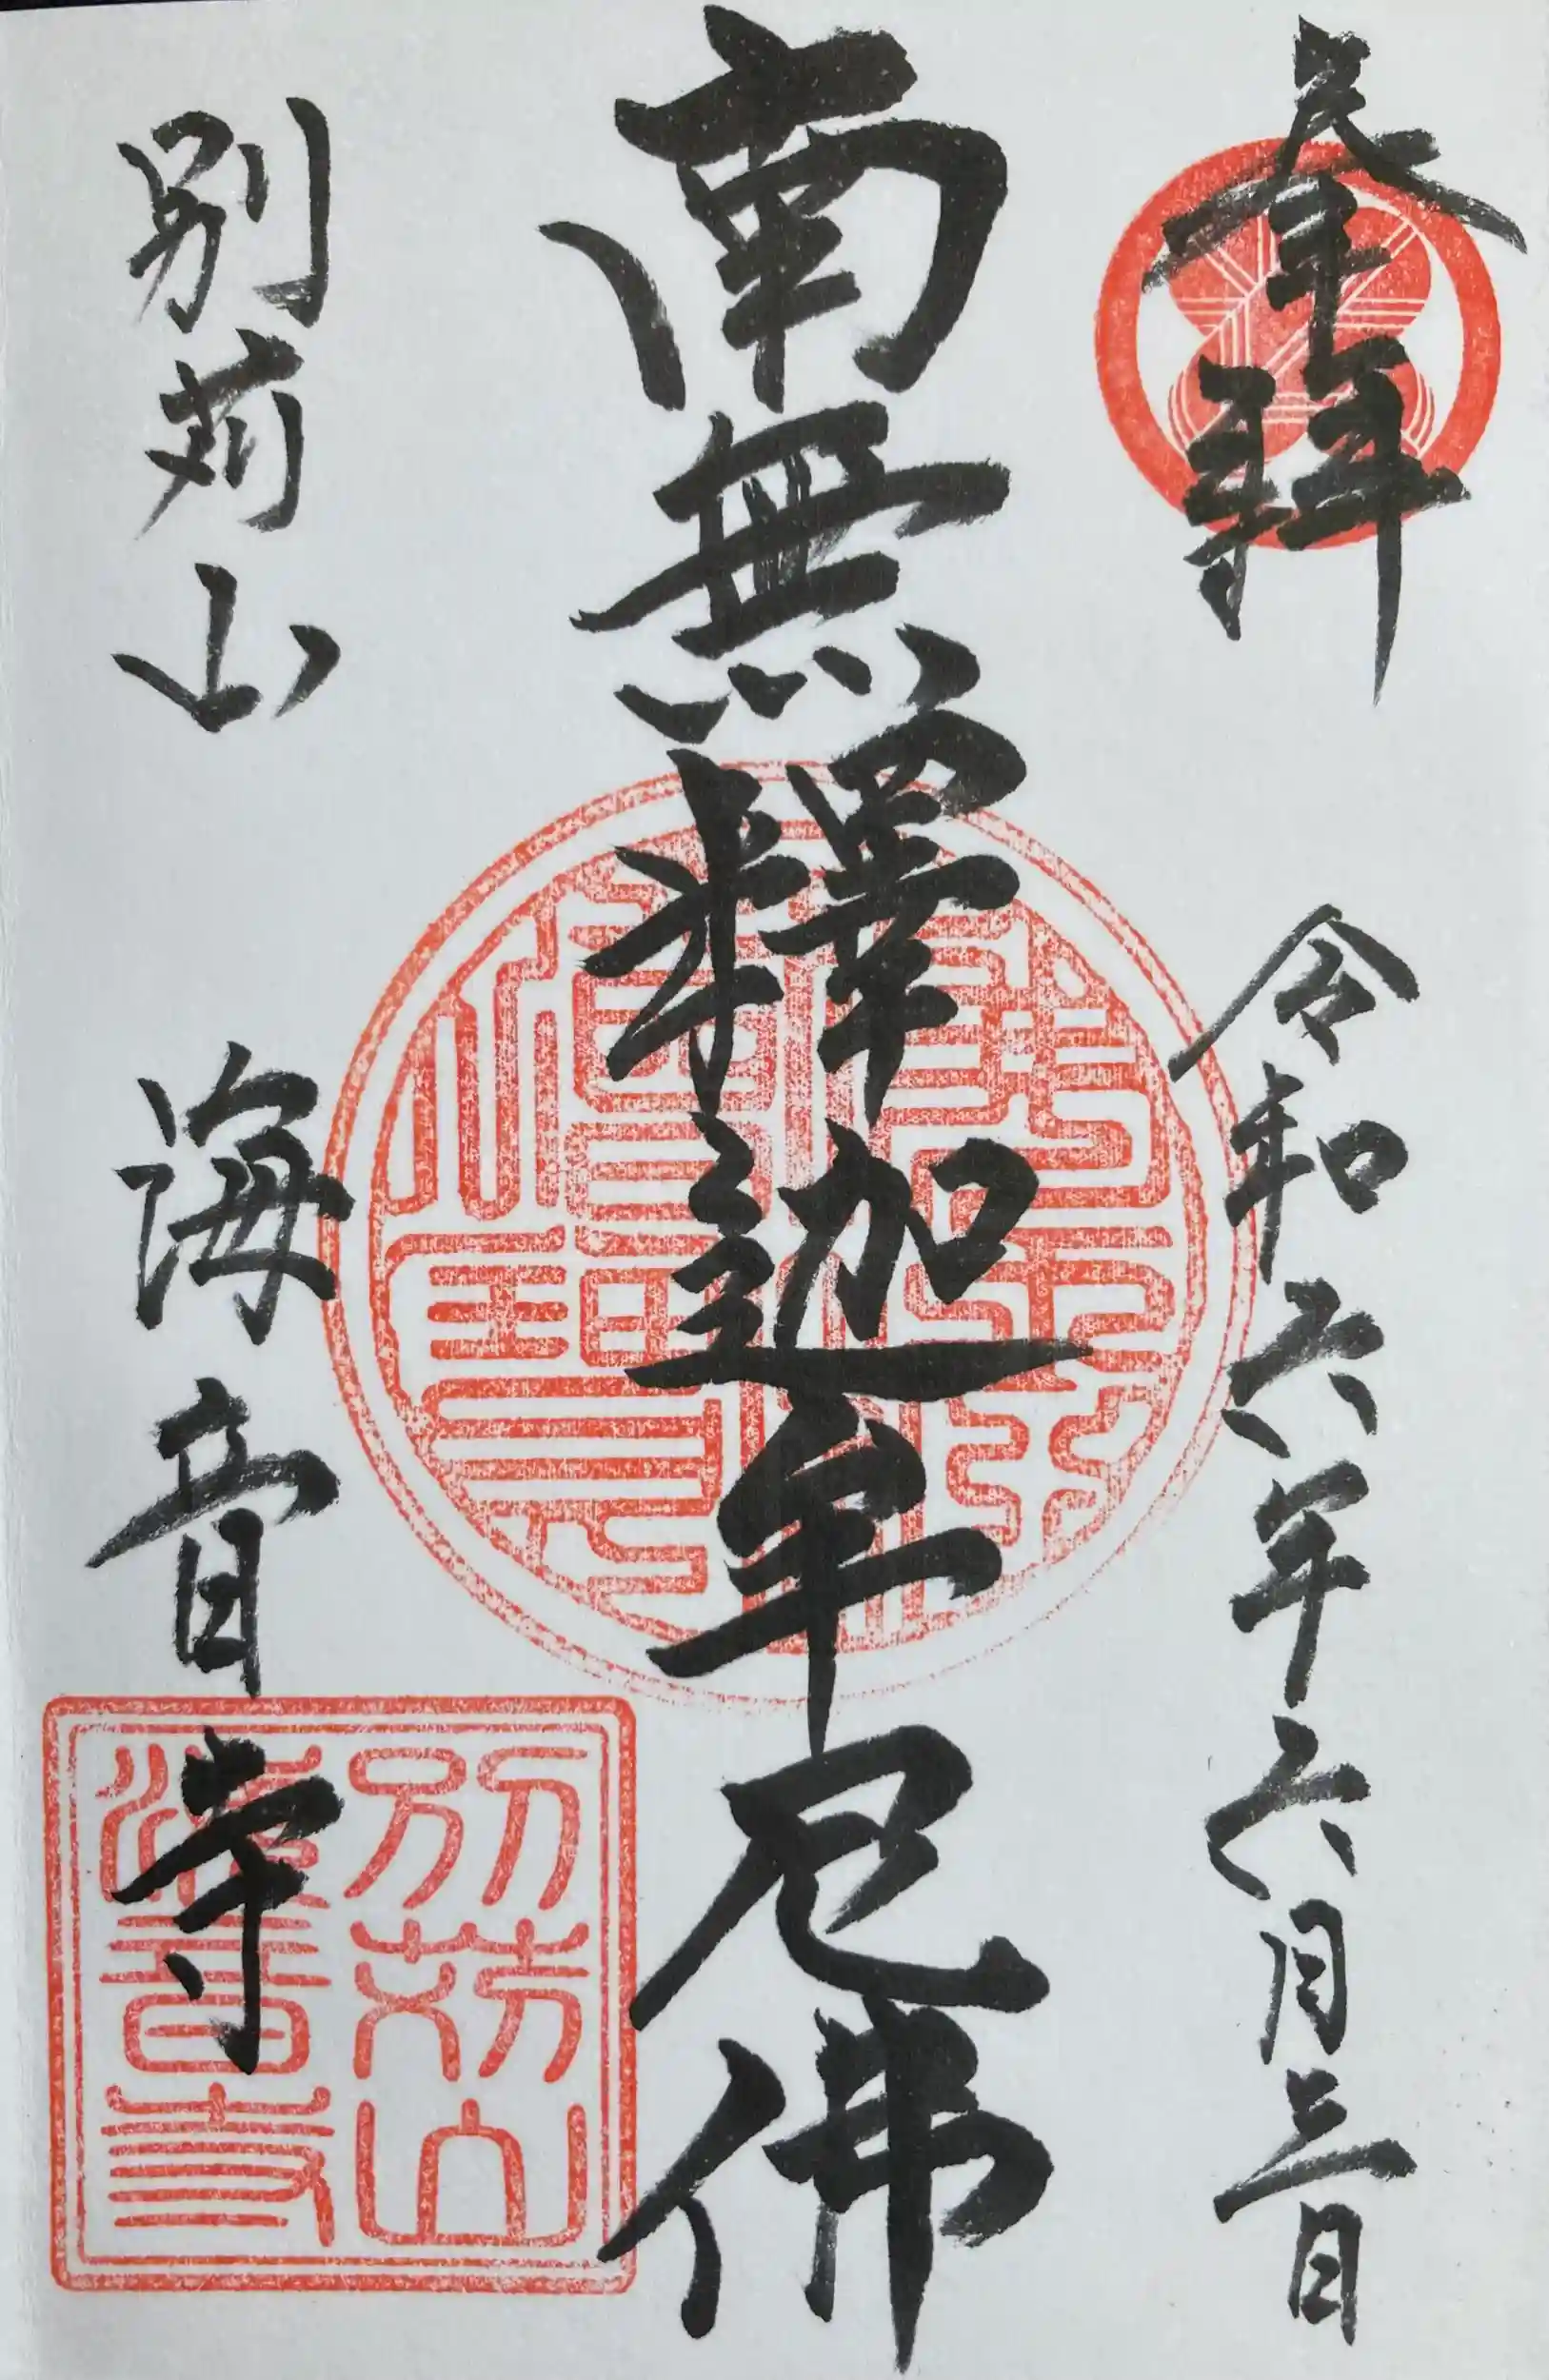 奉拜
令和六年六月三日
南無釋迦牟尼佛
別苅山 海音寺
別苅山
海音寺